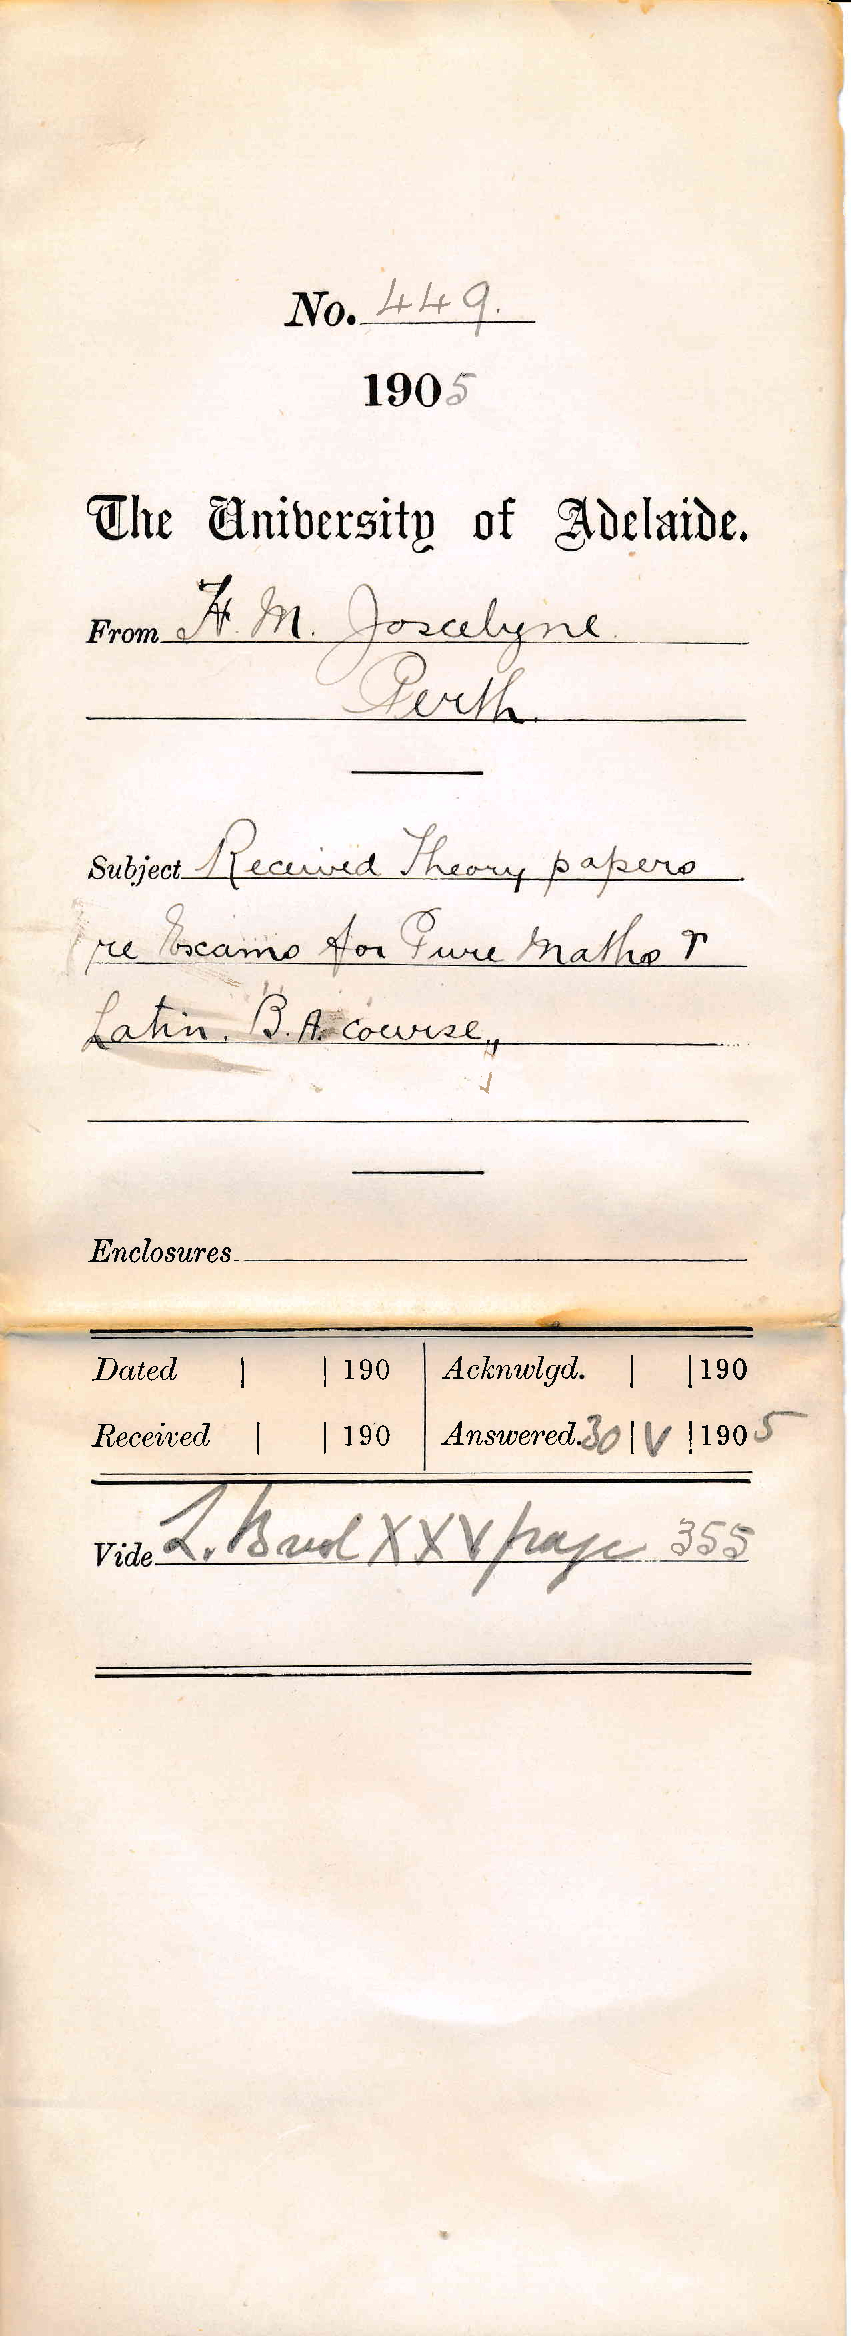 No. 449.
1905
The University of Adelaide.
From H. M. Joscelyne
Perth.
Subject Received Theory papers
re Exams for Pure Maths &
Latin. B.A. course,,
Enclosures
Dated | | 190 Acknwlgd. | | 190
Received | | 190 Answered. 30 | V | 1905
Vide L. Book XXV page 355